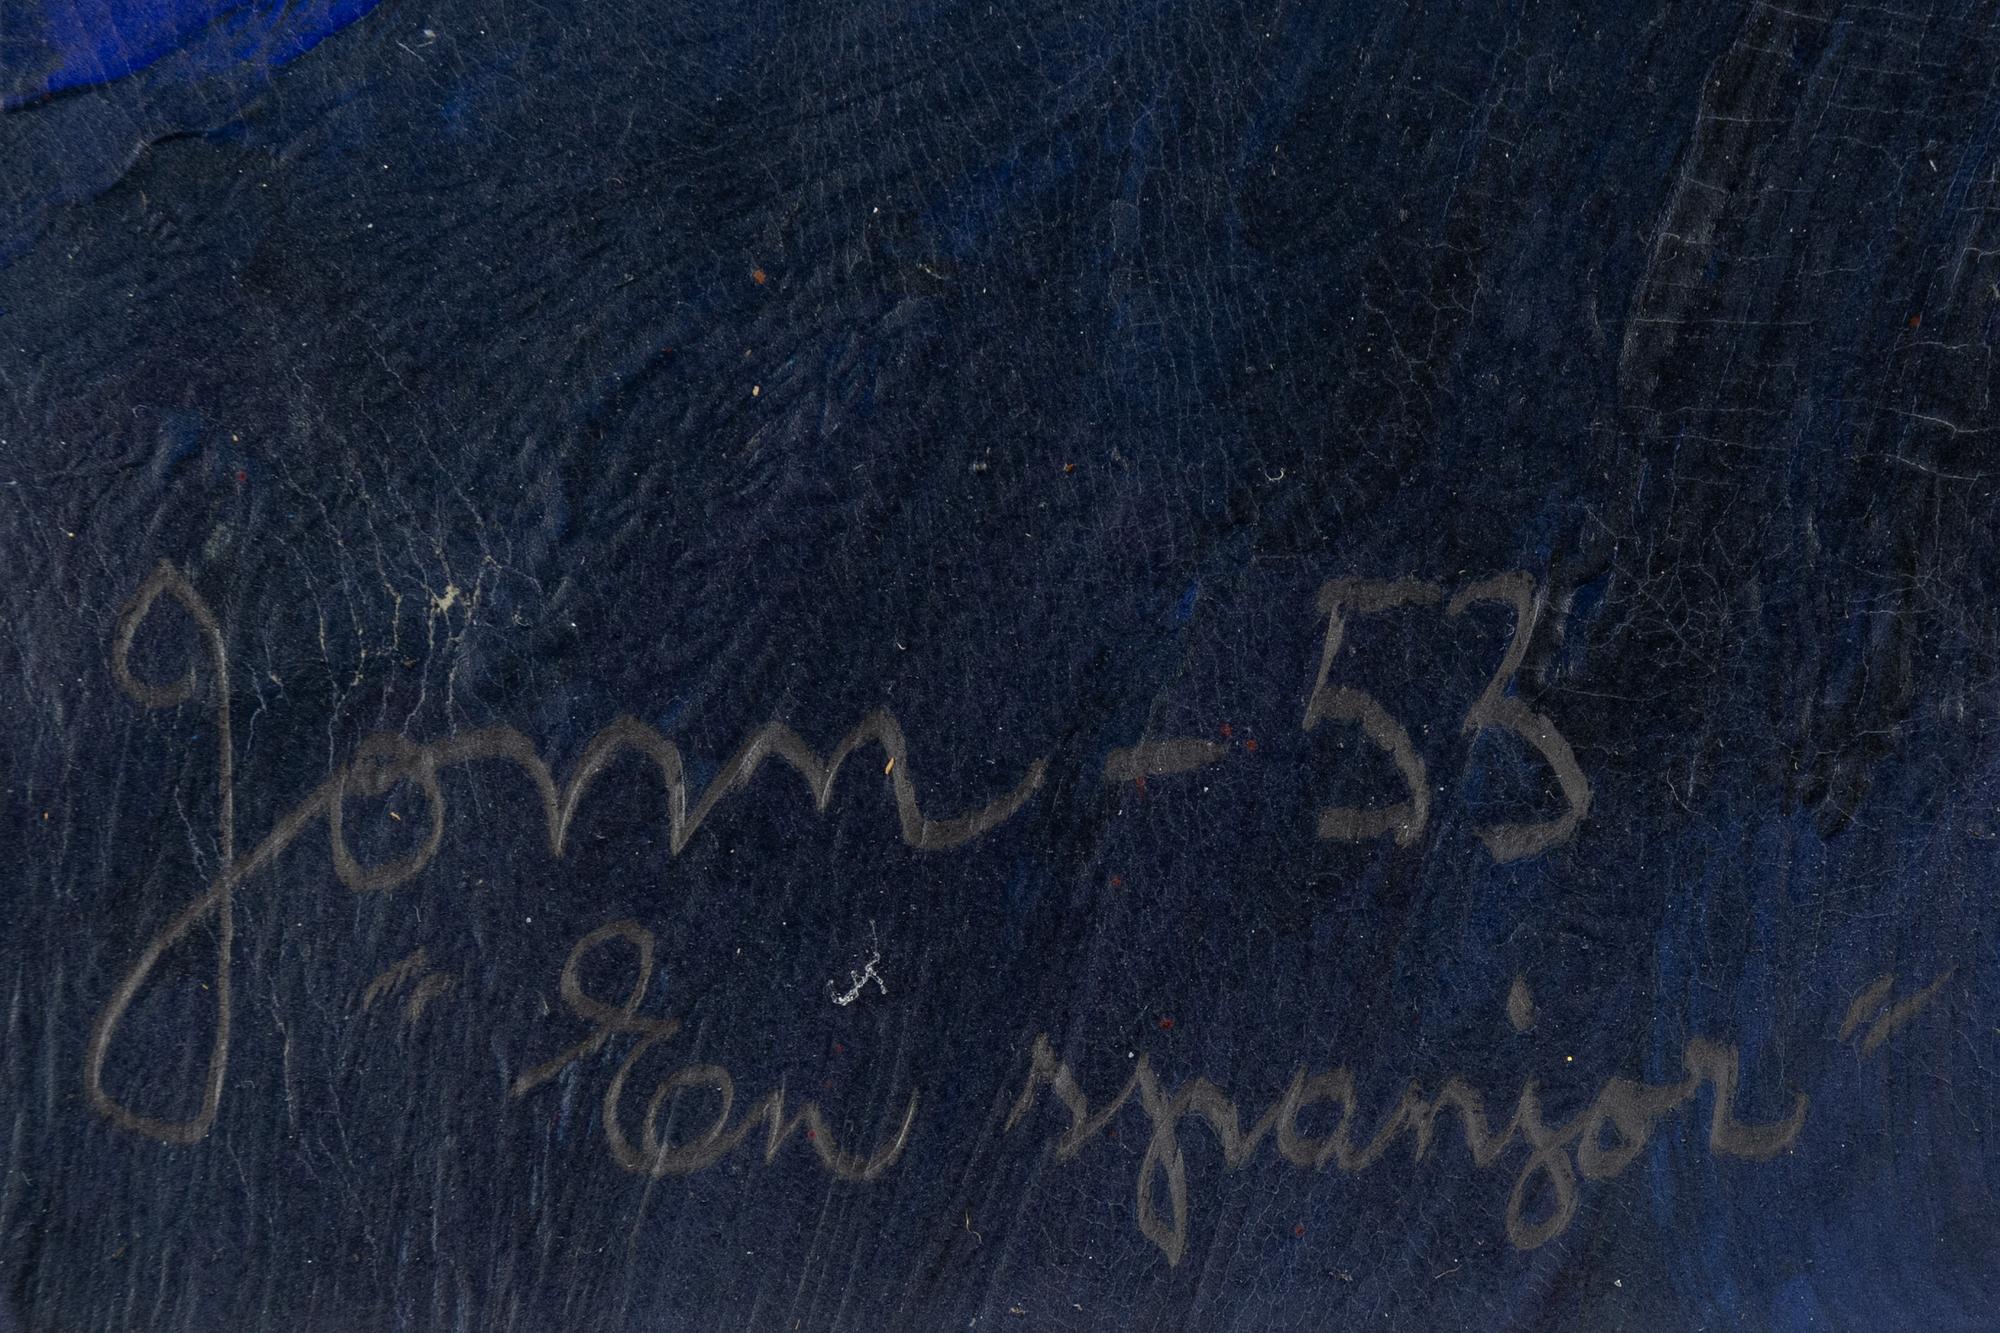 Jonn - 53
"En spanjor"